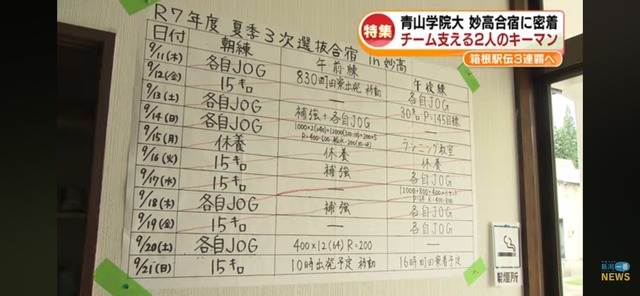 特集
青山学院大 妙高合宿に密着
チーム支える2人のキーマン
箱根駅伝3連覇へ
R7年度 夏季3次選抜合宿 in 妙高
日付 朝練 午前練 午後練
9/11(木) 各自JOG 830町田寮出発 移動 各自JOG
9/12(金) 15キロ ー
9/13(土) 各自JOG 補強+各自JOG
9/14(日) 各自JOG
9/15(月) 休養 休養 休養
9/16(火) 15キロ 補強 各自JOG
9/17(水) 15キロ ー
9/18(木) 各自JOG 補強 各自JOG
9/19(金) 15キロ ー 各自JOG
9/20(土) 各自JOG 400×12(64) R=200 ー
9/21(日) 15キロ 10時出発予定 移動 16時町田寮着予定
喫煙所
新潟一番
NEWS